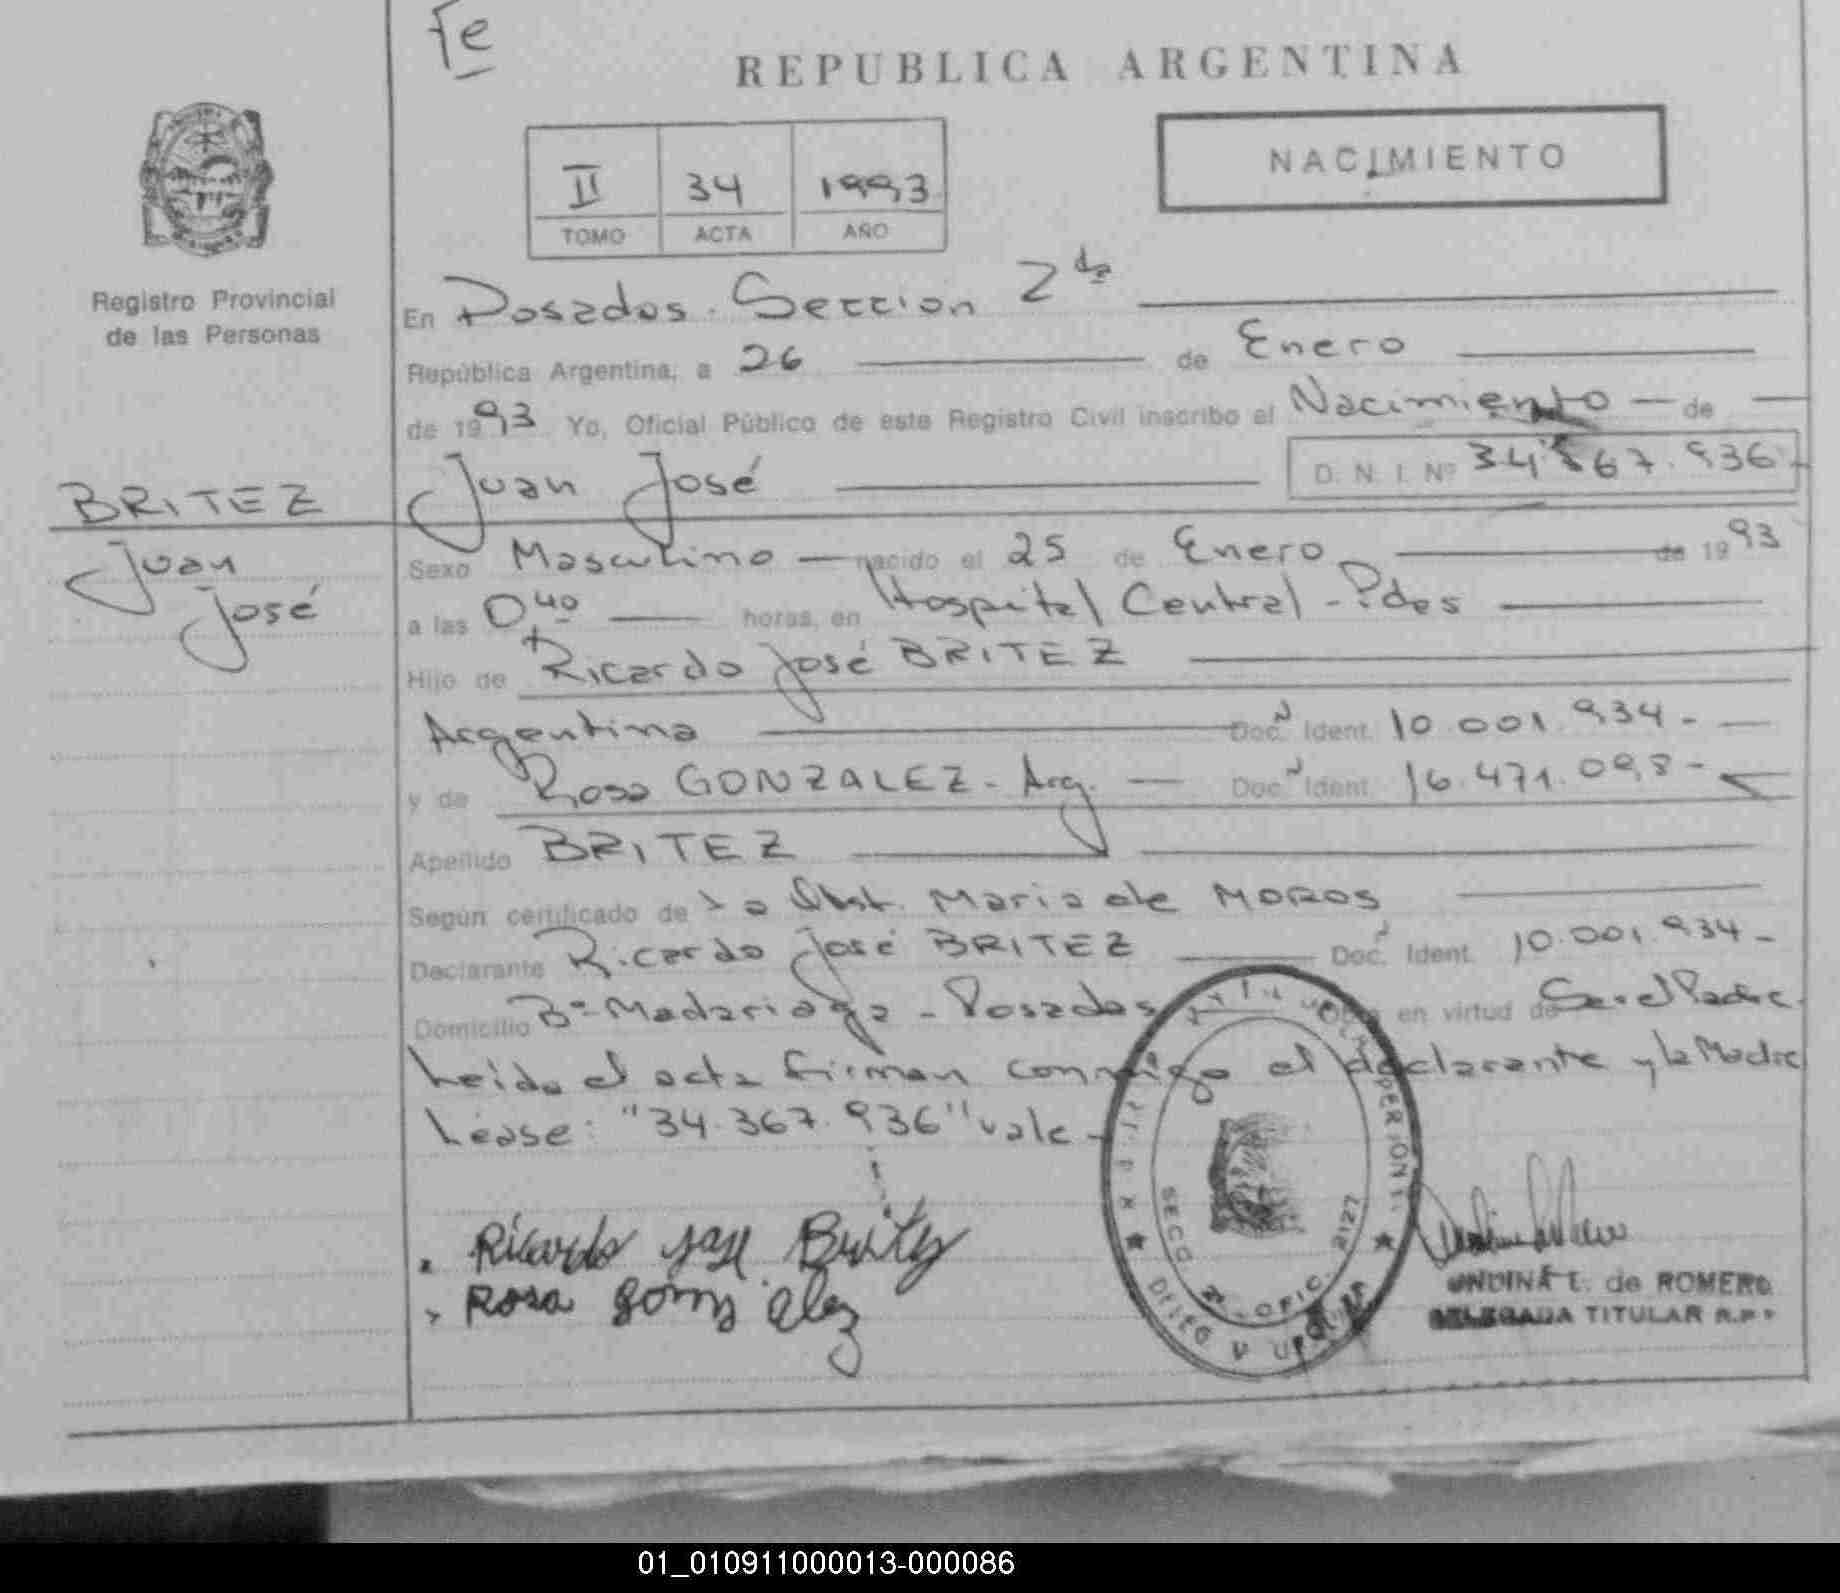 Fe
REPUBLICA ARGENTINA
NACIMIENTO
II 34 1993
TOMO ACTA AÑO
Registro Provincial
de las Personas
En Posadas. Sección 2da
República Argentina, a 26 de Enero
de 1993 Yo, Oficial Público de este Registro Civil inscribo el Nacimiento de
BRITEZ
Juan
José
Juan José D. N. I. Nº 34.367.936-
Sexo Masculino nacido el 25 de Enero de 1993
a las 0,40 horas, en Hospital Central - Pdas
Hijo de Ricardo José BRITEZ
Argentina Doc. Ident. 10.001.934-
y de Rosa GONZALEZ - Arg. Doc. Ident. 16.471.098-
Apellido BRITEZ
Según certificado de la Obst. Maria de MOROS
Declarante Ricardo José BRITEZ Doc. Ident. 10.001.934-
Domicilio Bº Madariaga - Posadas Obra en virtud de Ser el Padre.
Leida el acta firman conmigo el declarante y la Madre
Léase: "34.367.936" vale-
Ricardo José Britez
Rosa Gonzalez
SECC OFIC. 2127
UNDINA E. de ROMERO
DELEGADA TITULAR R.P.P
01_010911000013-000086